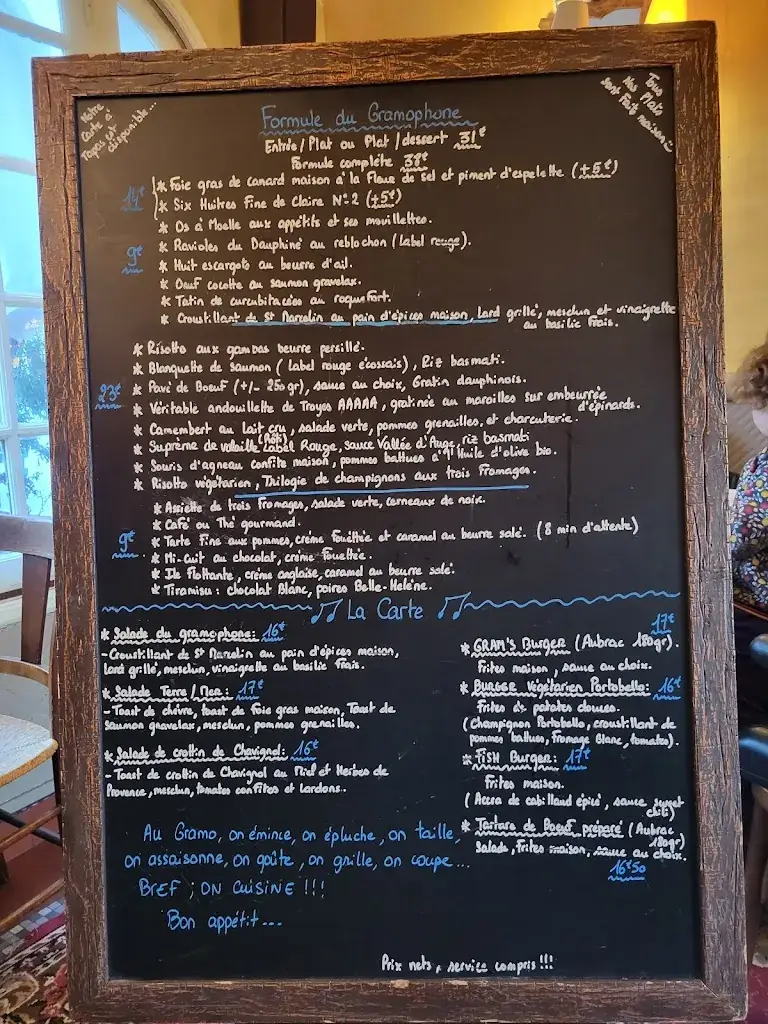 Notre
Carte à
Tapas est
disponible...
Tous
Nos Plats
sont Fait maison!!
Formule du Gramophone
Entrée/Plat ou Plat/dessert 31€
Formule complète 38€
14€
* Foie gras de canard maison à la Fleur de Sel et piment d'espelette (+5€)
* Six Huîtres Fine de Claire N°2 (+5€)
9€
* Os à Moelle aux appétits et ses mouillettes.
* Ravioles du Dauphiné au reblochon (label rouge).
* Huit escargots au beurre d'ail.
* Oeuf cocotte au saumon gravelax.
* Tatin de curcubitacées au roquefort.
* Croustillant de St Marcelin au pain d'épices maison, lard grillé, mesclun et vinaigrette
au basilic Frais.
23€
* Risotto aux gambas beurre persillé.
* Blanquette de saumon (label rouge écossais), Riz basmati.
* Pavé de Boeuf (+/- 250gr), sauce au choix, Gratin dauphinois.
* Véritable andouillette de Troyes AAAAA, gratinée au maroilles sur embeurrée
d'épinards.
* Camembert au lait cru (Rôti), salade verte, pommes grenailles, et charcuterie.
* Suprême de volaille Label Rouge, sauce Vallée d'Auge, riz basmati
* Souris d'agneau confite maison, pommes battues à l'Huile d'olive bio.
* Risotto végétarien, Thilogie de champignons aux trois Fromages.
9€
* Assiette de trois Fromages, salade verte, cerneaux de noix.
* Café ou Thé gourmand.
* Tarte Fine aux pommes, crème Fouéttée et caramel au beurre salé. (8 min d'attente)
* Mi-Cuit au chocolat, crème Fouettée.
* Ile Flottante, crème anglaise, caramel au beurre salé.
* Tiramisu : chocolat Blanc, poires Belle-Helène.
La Carte
* Salade du gramophone: 16€
- Croustillant de St Marcelin au pain d'épices maison,
lard grillé, mesclun, vinaigrette au basilic Frais.
* Salade Terre/Mer: 17€
- Toast de chèvre, toast de Foie gras maison, Toast de
saumon gravelax, mesclun, pommes grenailles.
* Salade de crottin de Chavignol: 16€
- Toast de crottin de Chavignol au Miel et Herbes de
Provence, mesclun, tomates confites et lardons.
17€
* GRAM'S Burger (Aubrac 180gr).
Frites maison, sauce au choix.
* BURGER Végétarien Portobello: 16€
Frites de patates douces.
(Champignon Portobello, croustillant de
pommes battues, Fromage Blanc, tomates).
* FISH Burger: 17€
Frites maison.
(Accra de cabilland épicé, sauce sweet
chili)
* Tartare de Boeuf préparé (Aubrac
180gr)
Salade, Frites maison, sauce au choix.
16€50
Au Gramo, on émince, on épluche, on taille,
on assaisonne, on goûte, on grille, on coupe...
BREF ; ON CUISINE !!!
Bon appétit...
Prix nets, service compris !!!